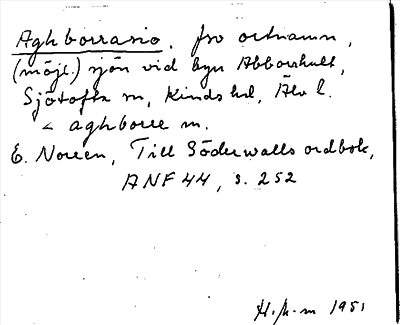 Aghborrasio, fsv ortnamn,
(möjl.) sjön vid byn Abborhult,
Sjötofta sn, Kinds hd, Älv l.
< aghborre m.
E. Noreen, Till Söderwalls ordbok,
ANF 44, s. 252
1951